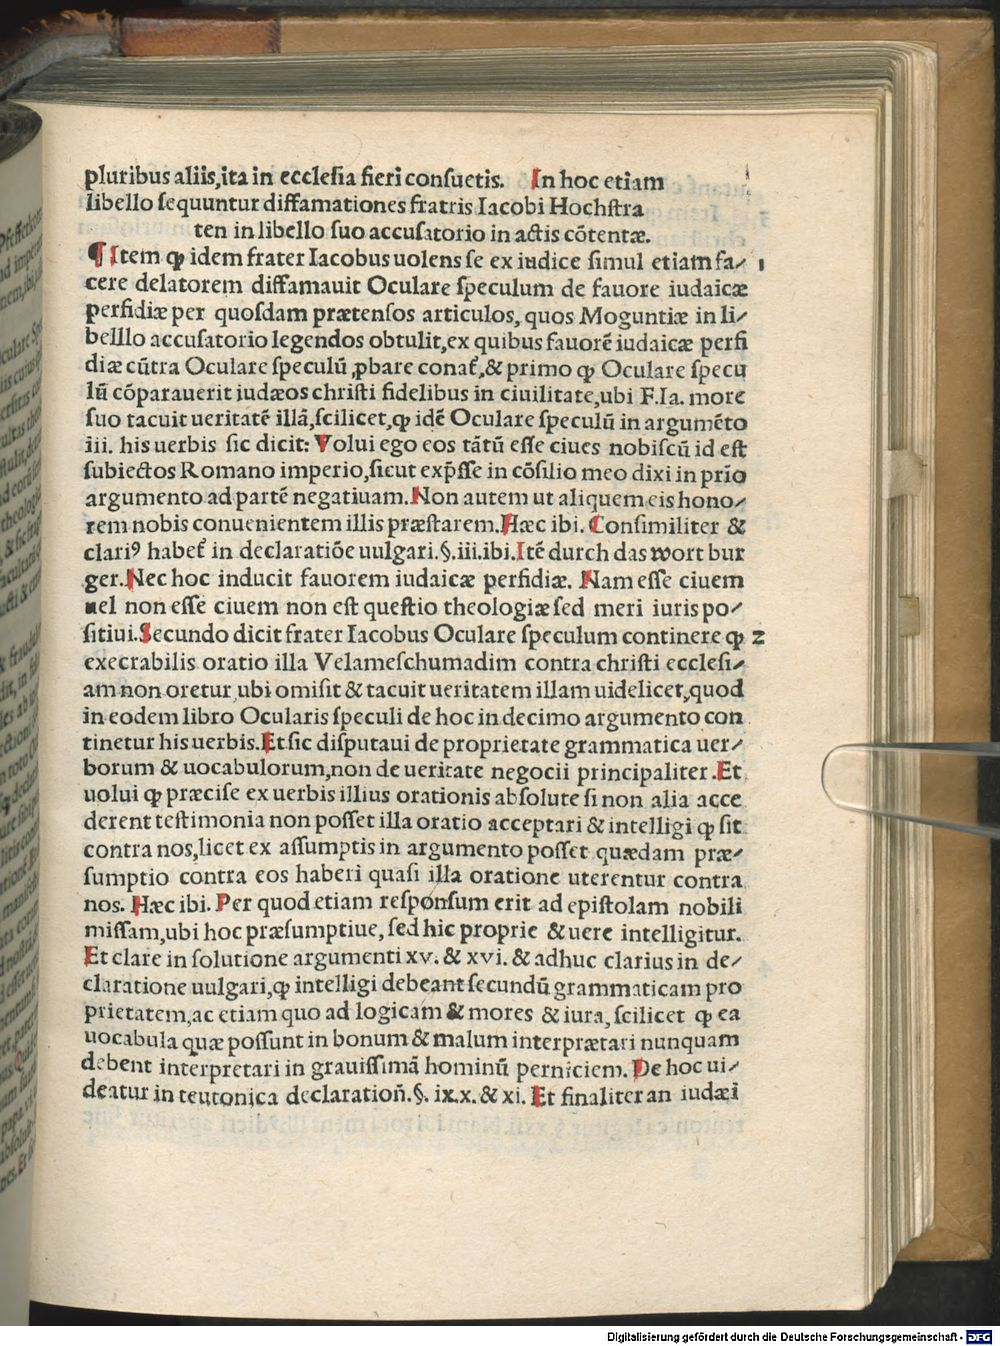 pluribus aliis,ita in ecclesia fieri consuetis. In hoc etiam
libello sequuntur diffamationes fratris Iacobi Hochstra
ten in libello suo accusatorio in actis cōtentæ.
¶ Item ꝙ idem frater Iacobus uolens se ex iudice simul etiam fa⸗ 1
cere delatorem diffamauit Oculare speculum de fauore iudaicæ
perfidiæ per quosdam prætensos articulos, quos Moguntiæ in li⸗
belllo accusatorio legendos obtulit,ex quibus fauorē iudaicæ perfi
diæ cūtra Oculare speculū ꝓbare conat᷑,& primo ꝙ Oculare specu
lū cōparauerit iudæos christi fidelibus in ciuilitate,ubi F.Ia. more
suo tacuit ueritatē illā,scilicet,ꝙ idē Oculare speculū in argumēto
iii. his uerbis sic dicit: Volui ego eos tātū esse ciues nobiscū id est
subiectos Romano imperio,sicut exp̄sse in cōsilio meo dixi in prio
argumento ad partē negatiuam. Non autem ut aliquem eis hono⸗
rem nobis conuenientem illis præstarem. Hæc ibi. Consimiliter &
clariꝰ habet᷑ in declaratiōe uulgari.§.iii.ibi.Itē durch das wort bur
ger. Nec hoc inducit fauorem iudaicæ perfidiæ. Nam esse ciuem
uel non esse ciuem non est questio theologiæ sed meri iuris po⸗
sitiui. Secundo dicit frater Iacobus Oculare speculum continere ꝙ 2
execrabilis oratio illa Velameschumadim contra christi ecclesi⸗
am non oretur ubi omisit & tacuit ueritatem illam uidelicet,quod
in eodem libro Ocularis speculi de hoc in decimo argumento con
tinetur his uerbis. Et sic disputaui de proprietate grammatica uer⸗
borum & uocabulorum,non de ueritate negocii principaliter. Et
uolui ꝙ præcise ex uerbis illius orationis absolute si non alia acce
derent testimonia non posset illa oratio acceptari & intelligi ꝙ sit
contra nos,licet ex assumptis in argumento posset quædam præ⸗
sumptio contra eos haberi quasi illa oratione uterentur contra
nos. Hæc ibi. Per quod etiam responsum erit ad epistolam nobili
missam,ubi hoc præsumptiue, sed hic proprie & uere intelligitur.
Et clare in solutione argumenti xv. & xvi. & adhuc clarius in de⸗
claratione uulgari,ꝙ intelligi debeant secundū grammaticam pro
prietatem,ac etiam quo ad logicam & mores & iura, scilicet ꝙ ea
uocabula quæ possunt in bonum & malum interprætari nunquam
debent interpretari in grauissimā hominū perniciem. De hoc ui⸗
deatur in teutonica declaration̄. §. ix.x. & xi. Et finaliter an iudæi
Digitalisierung gefördert durch die Deutsche Forschungsgemeinschaft - DFG